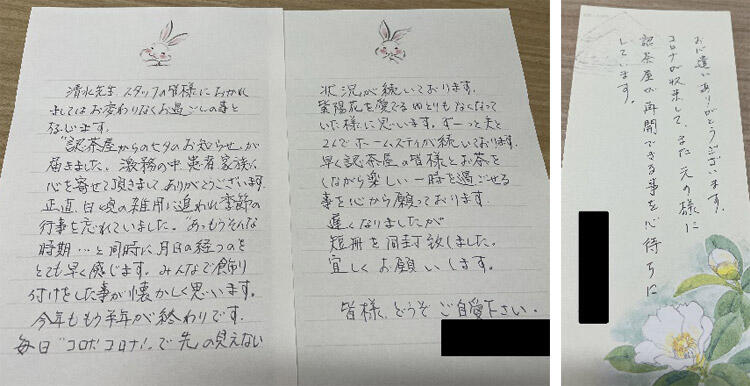 清水先生、スタッフの皆様におかれ
ましてはお変わりなくお過ごしの事と
存じます。
"認茶屋からの七夕のお知らせ"が
届きました。激務の中、患者、家族に
心を寄せて頂きまして、ありがとうございます。
正直、日々の雑用に追われ季節の
行事を忘れていました。"あっもうそんな
時期…"と同時に月日の経つのを
とても早く感じます。みんなで飾り
付けをした事が懐かしく思います。
今年ももう半年が終わりです。
毎日"コロナ コロナ!"で先の見えない
状況が続いております。
紫陽花を愛でるゆとりもなくなって
いた様に思います。ずーっと夫と
2人でホームスティが続いております。
早く認茶屋の皆様とお茶を
しながら楽しい一時を過ごせる
事を心から願っております。
遅くなりましたが
短冊を同封致しました。
宜しくお願いします。
皆様、どうぞご自愛下さい。
お心遣いありがとうございます。
コロナが収束して、また元の様に
認茶屋が再開できる事を心待ちに
しています。